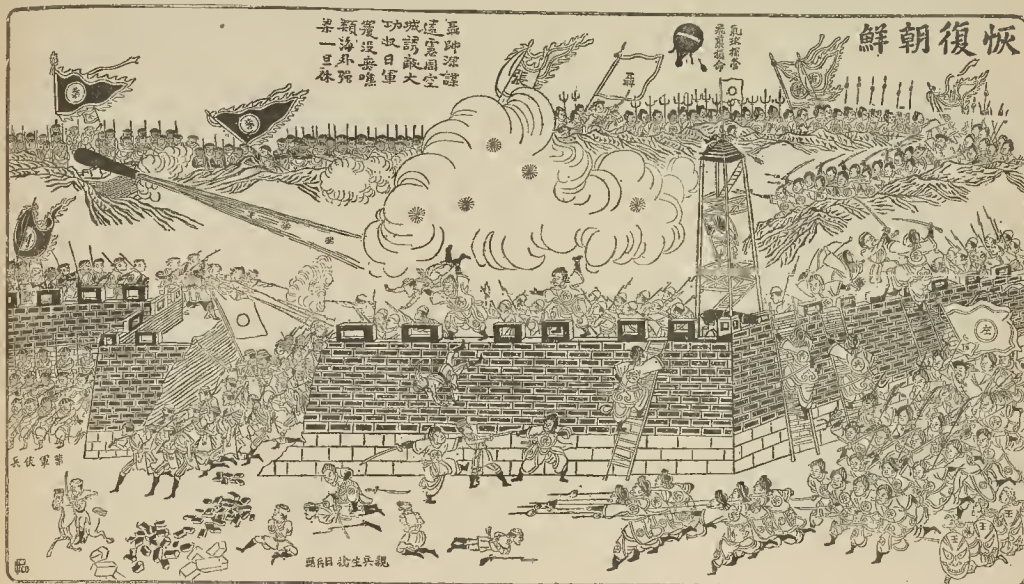 恢復朝鮮
聶帥深謀
遠慮周空
城誘敵大
功收日軍
覆没無噍
類海外强
梁一旦休
聶
葉
葉
左
葉軍伏兵
親兵生擒日